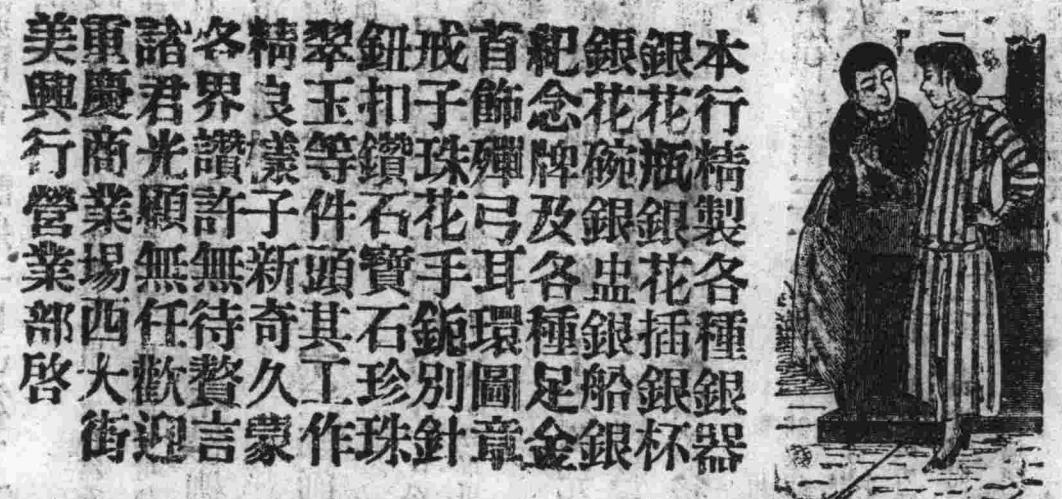 本行精製各種銀器
銀花瓶銀花插銀杯
銀花碗銀盅銀船銀
紀念牌及各種足金
首飾殫弓耳環圖章
戒子珠花手鈪別針
鈕扣鑽石寶石珍珠
翠玉等件頭其工作
精良樣子新奇久蒙
各界讚許無待贅言
諸君光顧無任歡迎
重慶商業場西大街
美興行營業部啓